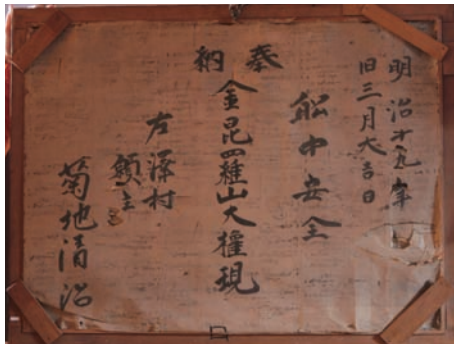 明治廿九年
旧三月大吉日
舩中安全
奉納
金昆羅山大權現
左澤村
願主
菊地清治